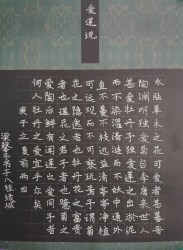 爱莲说
水陆草木之花可爱者甚蕃晋
陶渊明独爱菊自李唐来世人
甚爱牡丹予独爱莲之出淤泥
而不染濯清涟而不妖中通外
直不蔓不枝香远益清亭亭净植
可远观而不可亵玩焉予谓菊
花之隐逸者也牡丹花之富贵
者也莲花之君子者也噫菊之
爱陶后鲜有闻莲之爱同予者
何人牡丹之爱宜乎众矣
庚子之夏前两日
书于八桂绿城